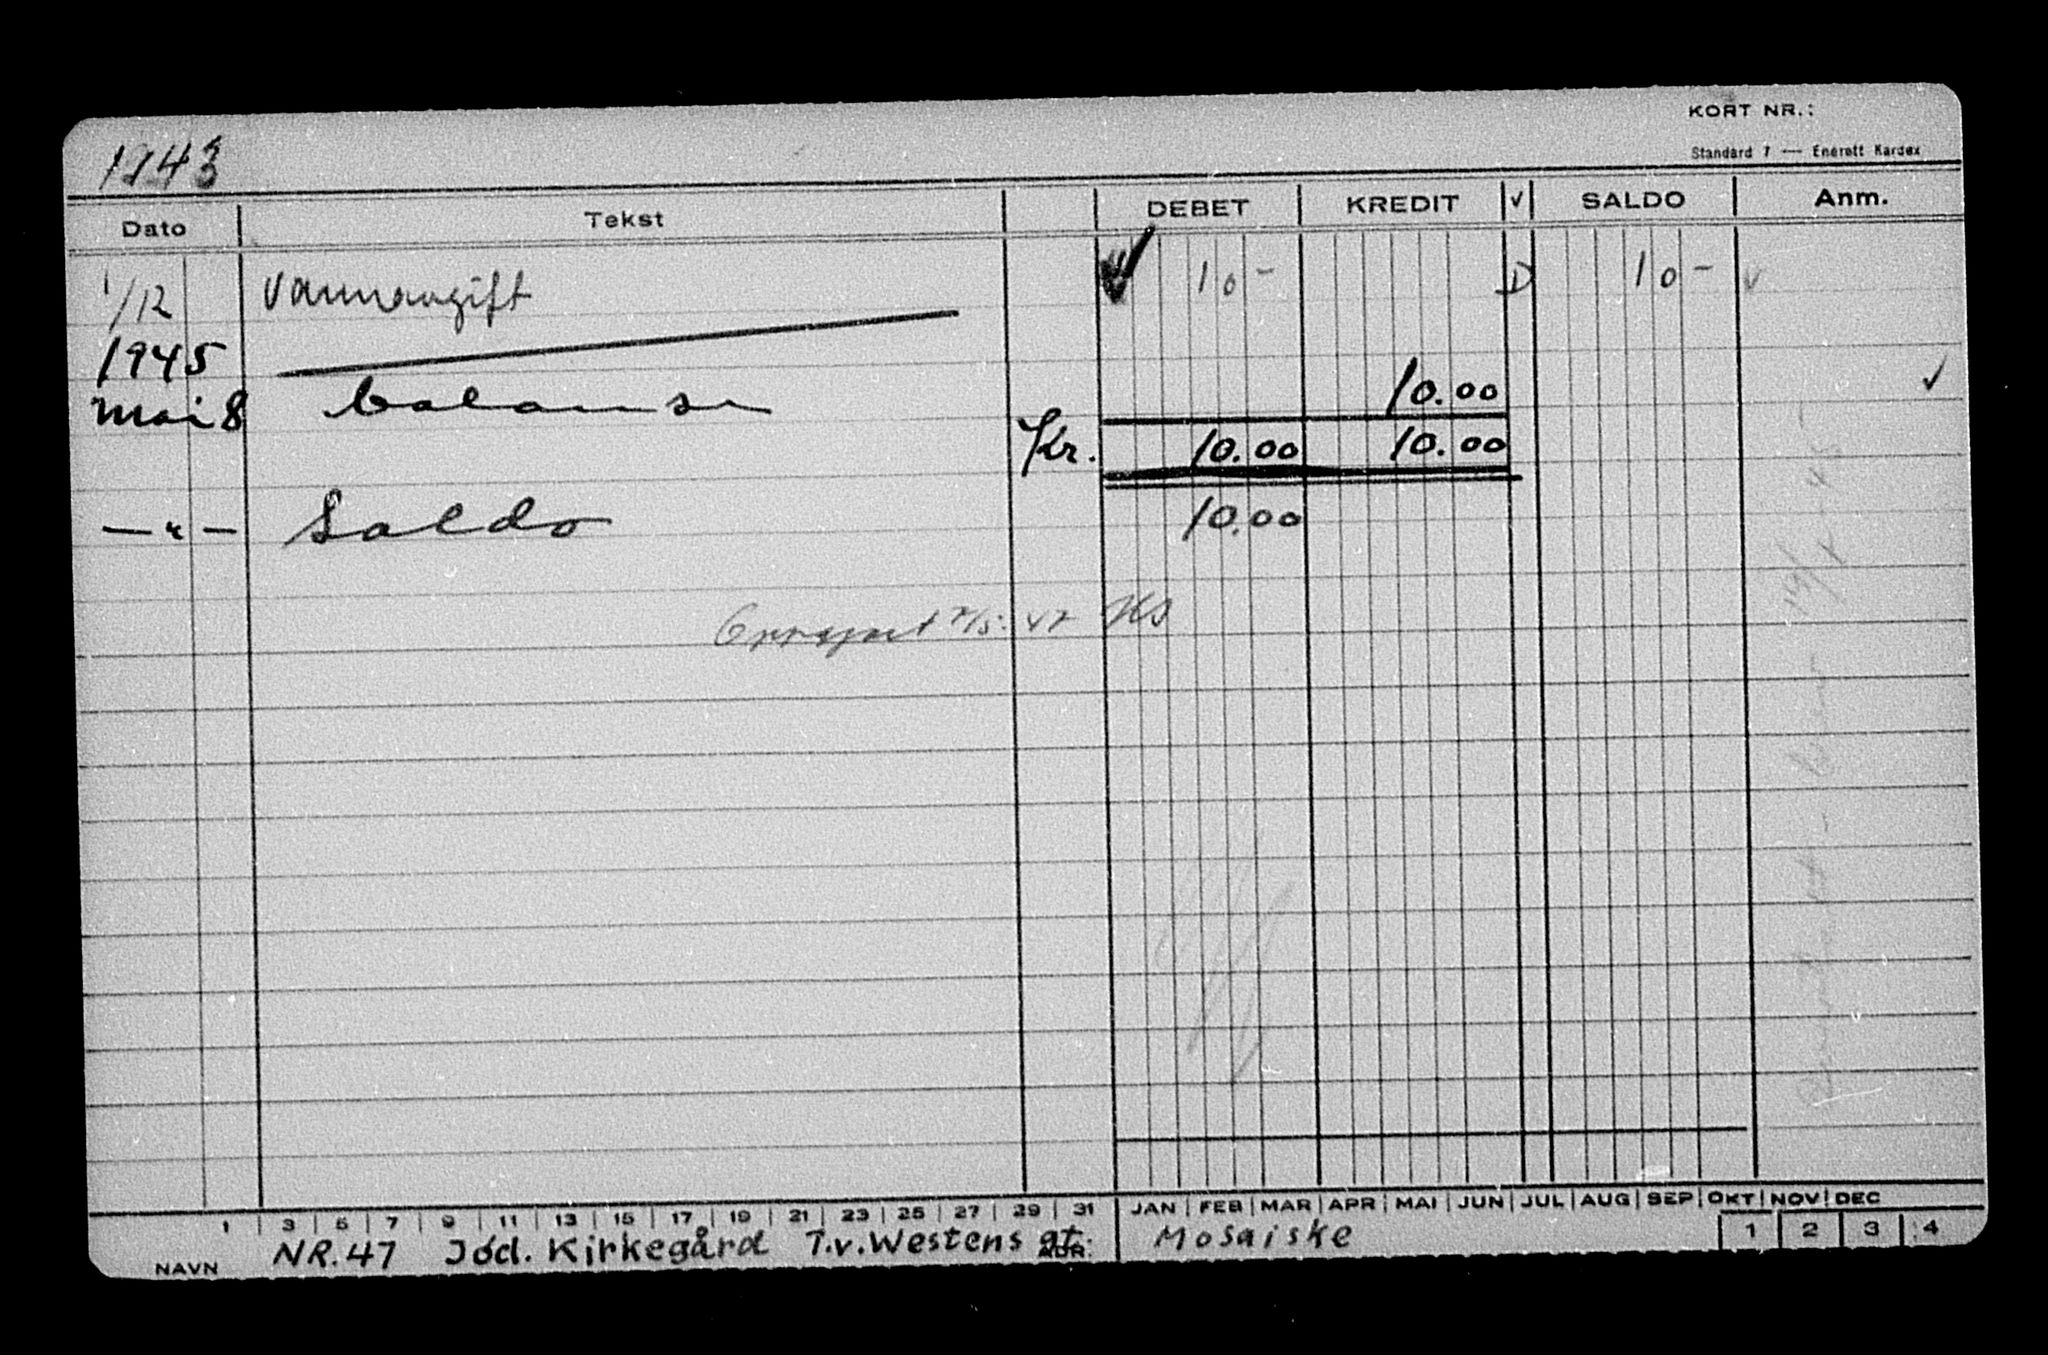 KORT NR.:
Standard 7 — Enerett Kardex
1943
Dato Tekst DEBET KREDIT √ SALDO Anm.
1/12 Vannavgift 10- D 10- √
1945
mai 8 balanse 10.00 √
Kr. 10.00 10.00
—"— Saldo 10.00
Oppgjort
1 3 5 7 9 11 13 15 17 19 21 23 25 27 29 31 JAN FEB MAR APR MAI JUN JUL AUG SEP OKT NOV DEC
NAVN NR. 47 Jød. Kirkegård T.v. Westens gt. ADR: Mosaiske 1 2 3 4